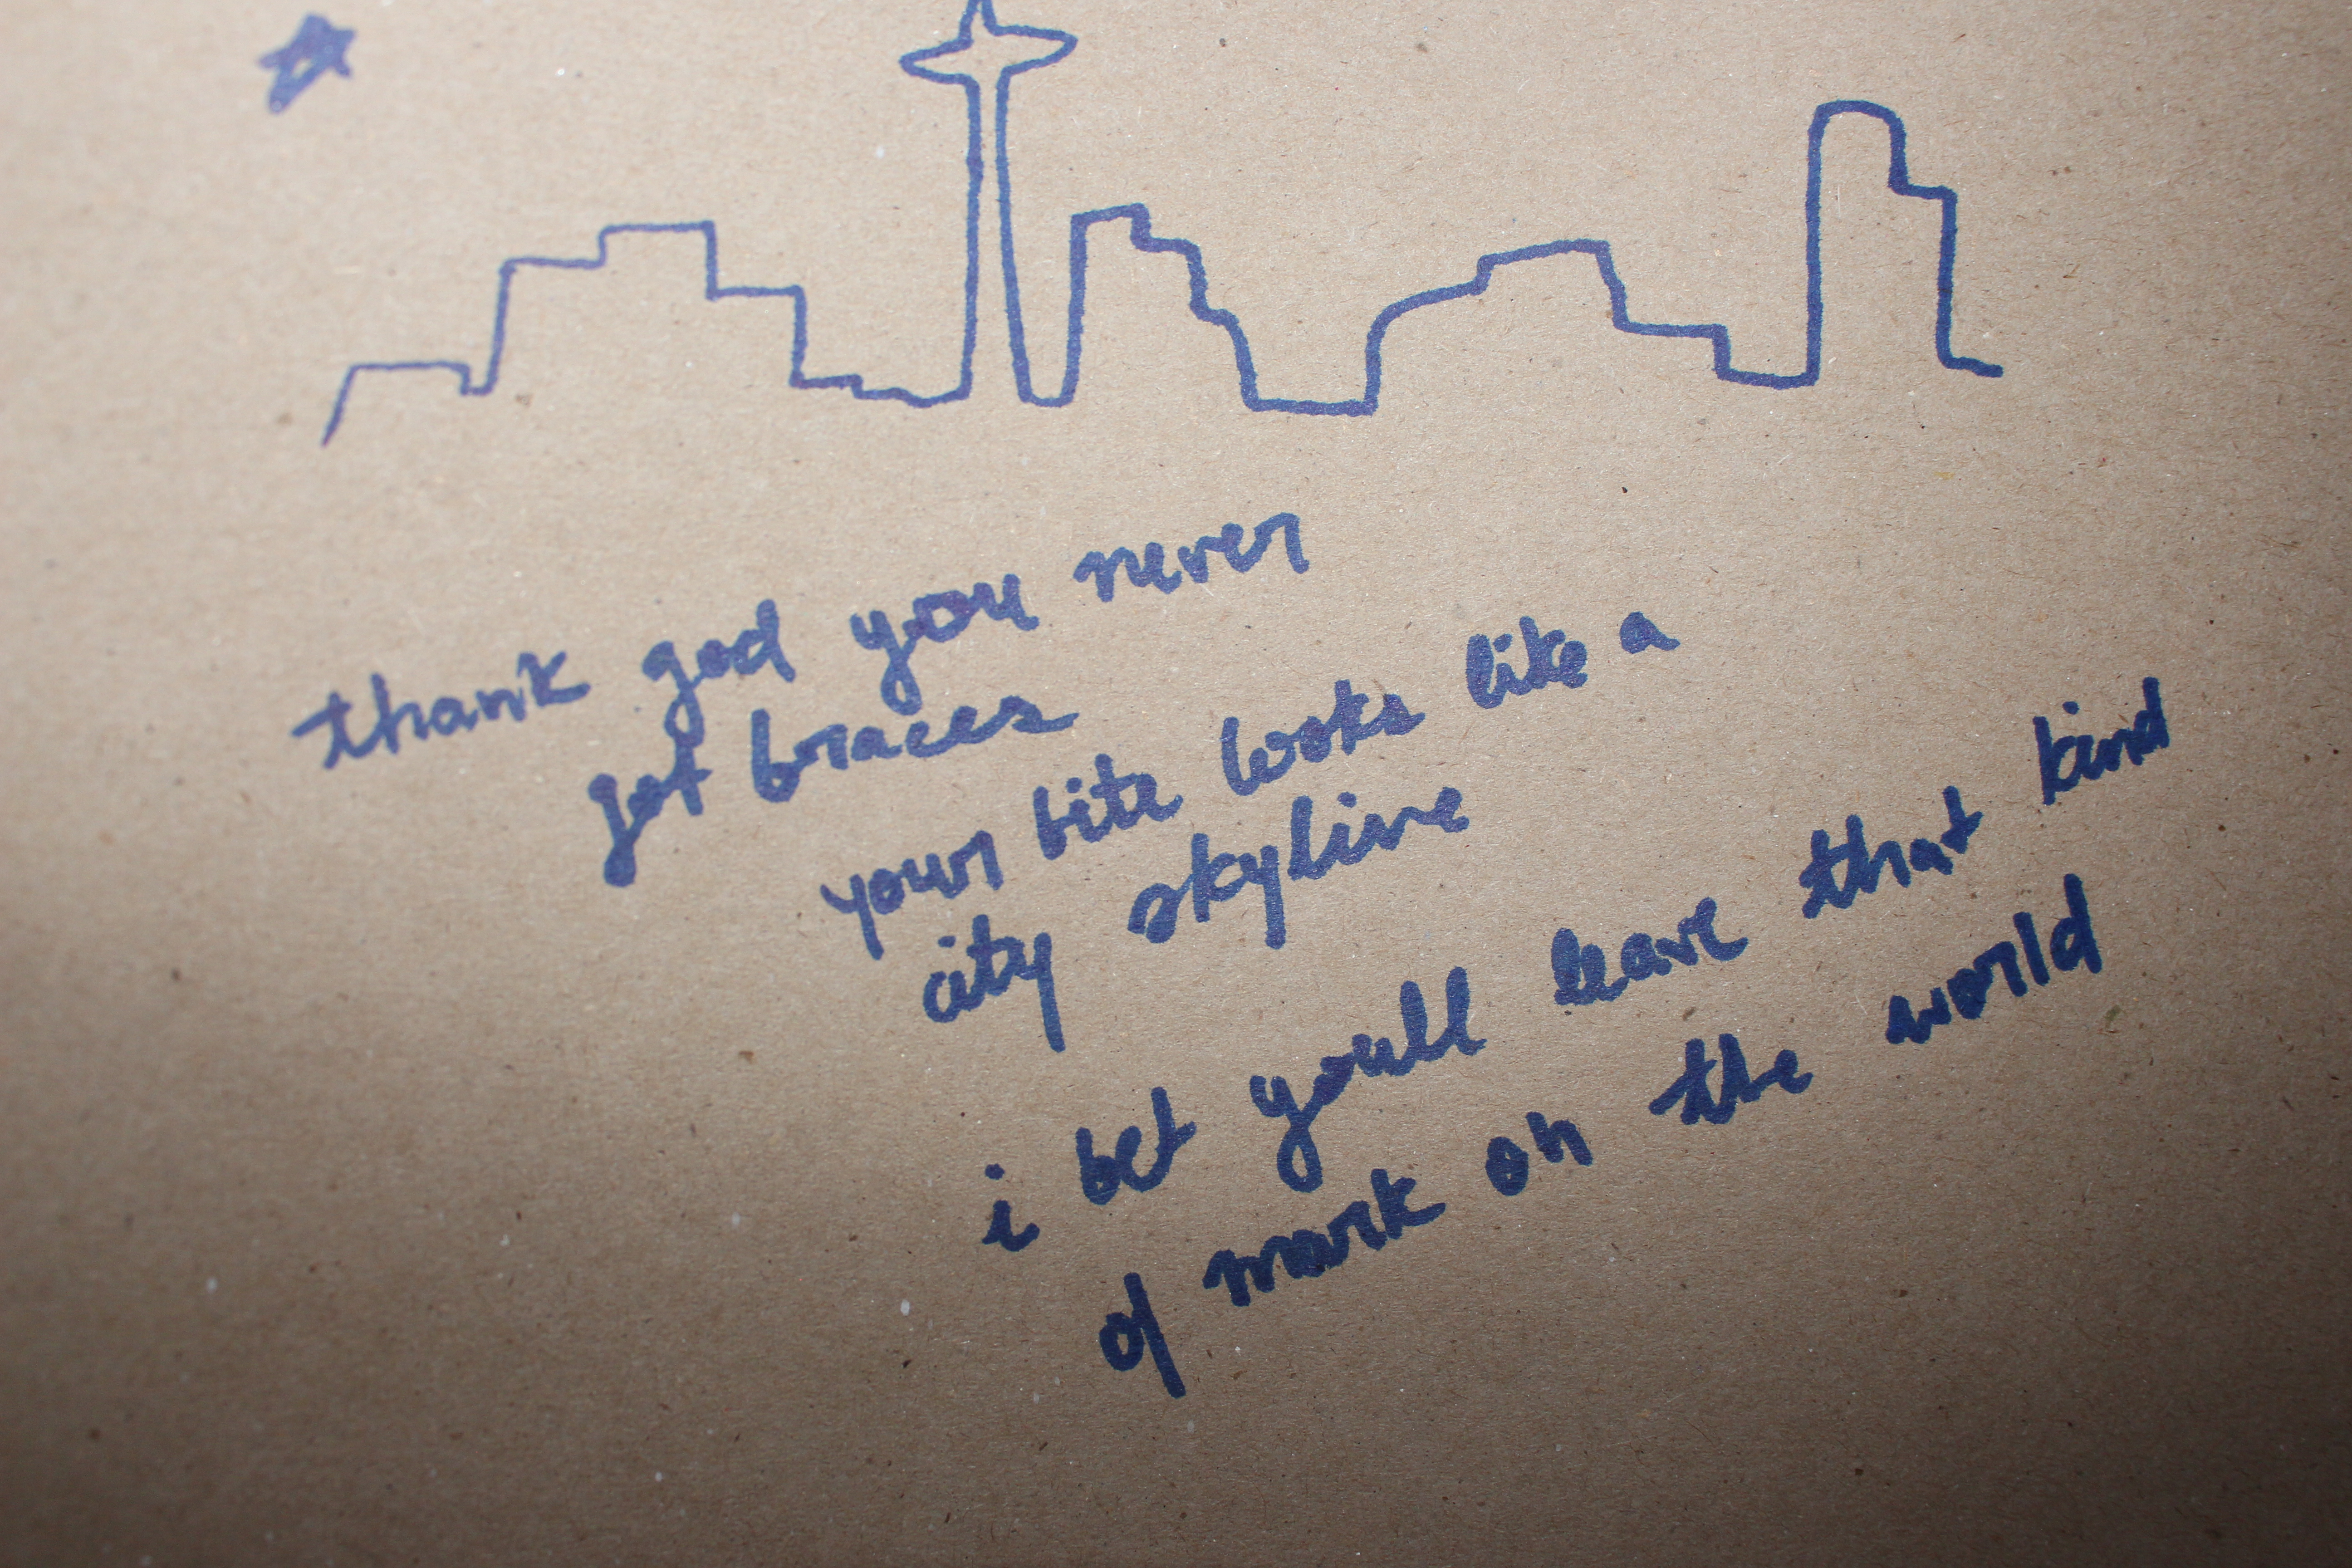 thank god you never
got braces
your bite looks like a
city skyline
i bet youll leave that kind
of mark on the world